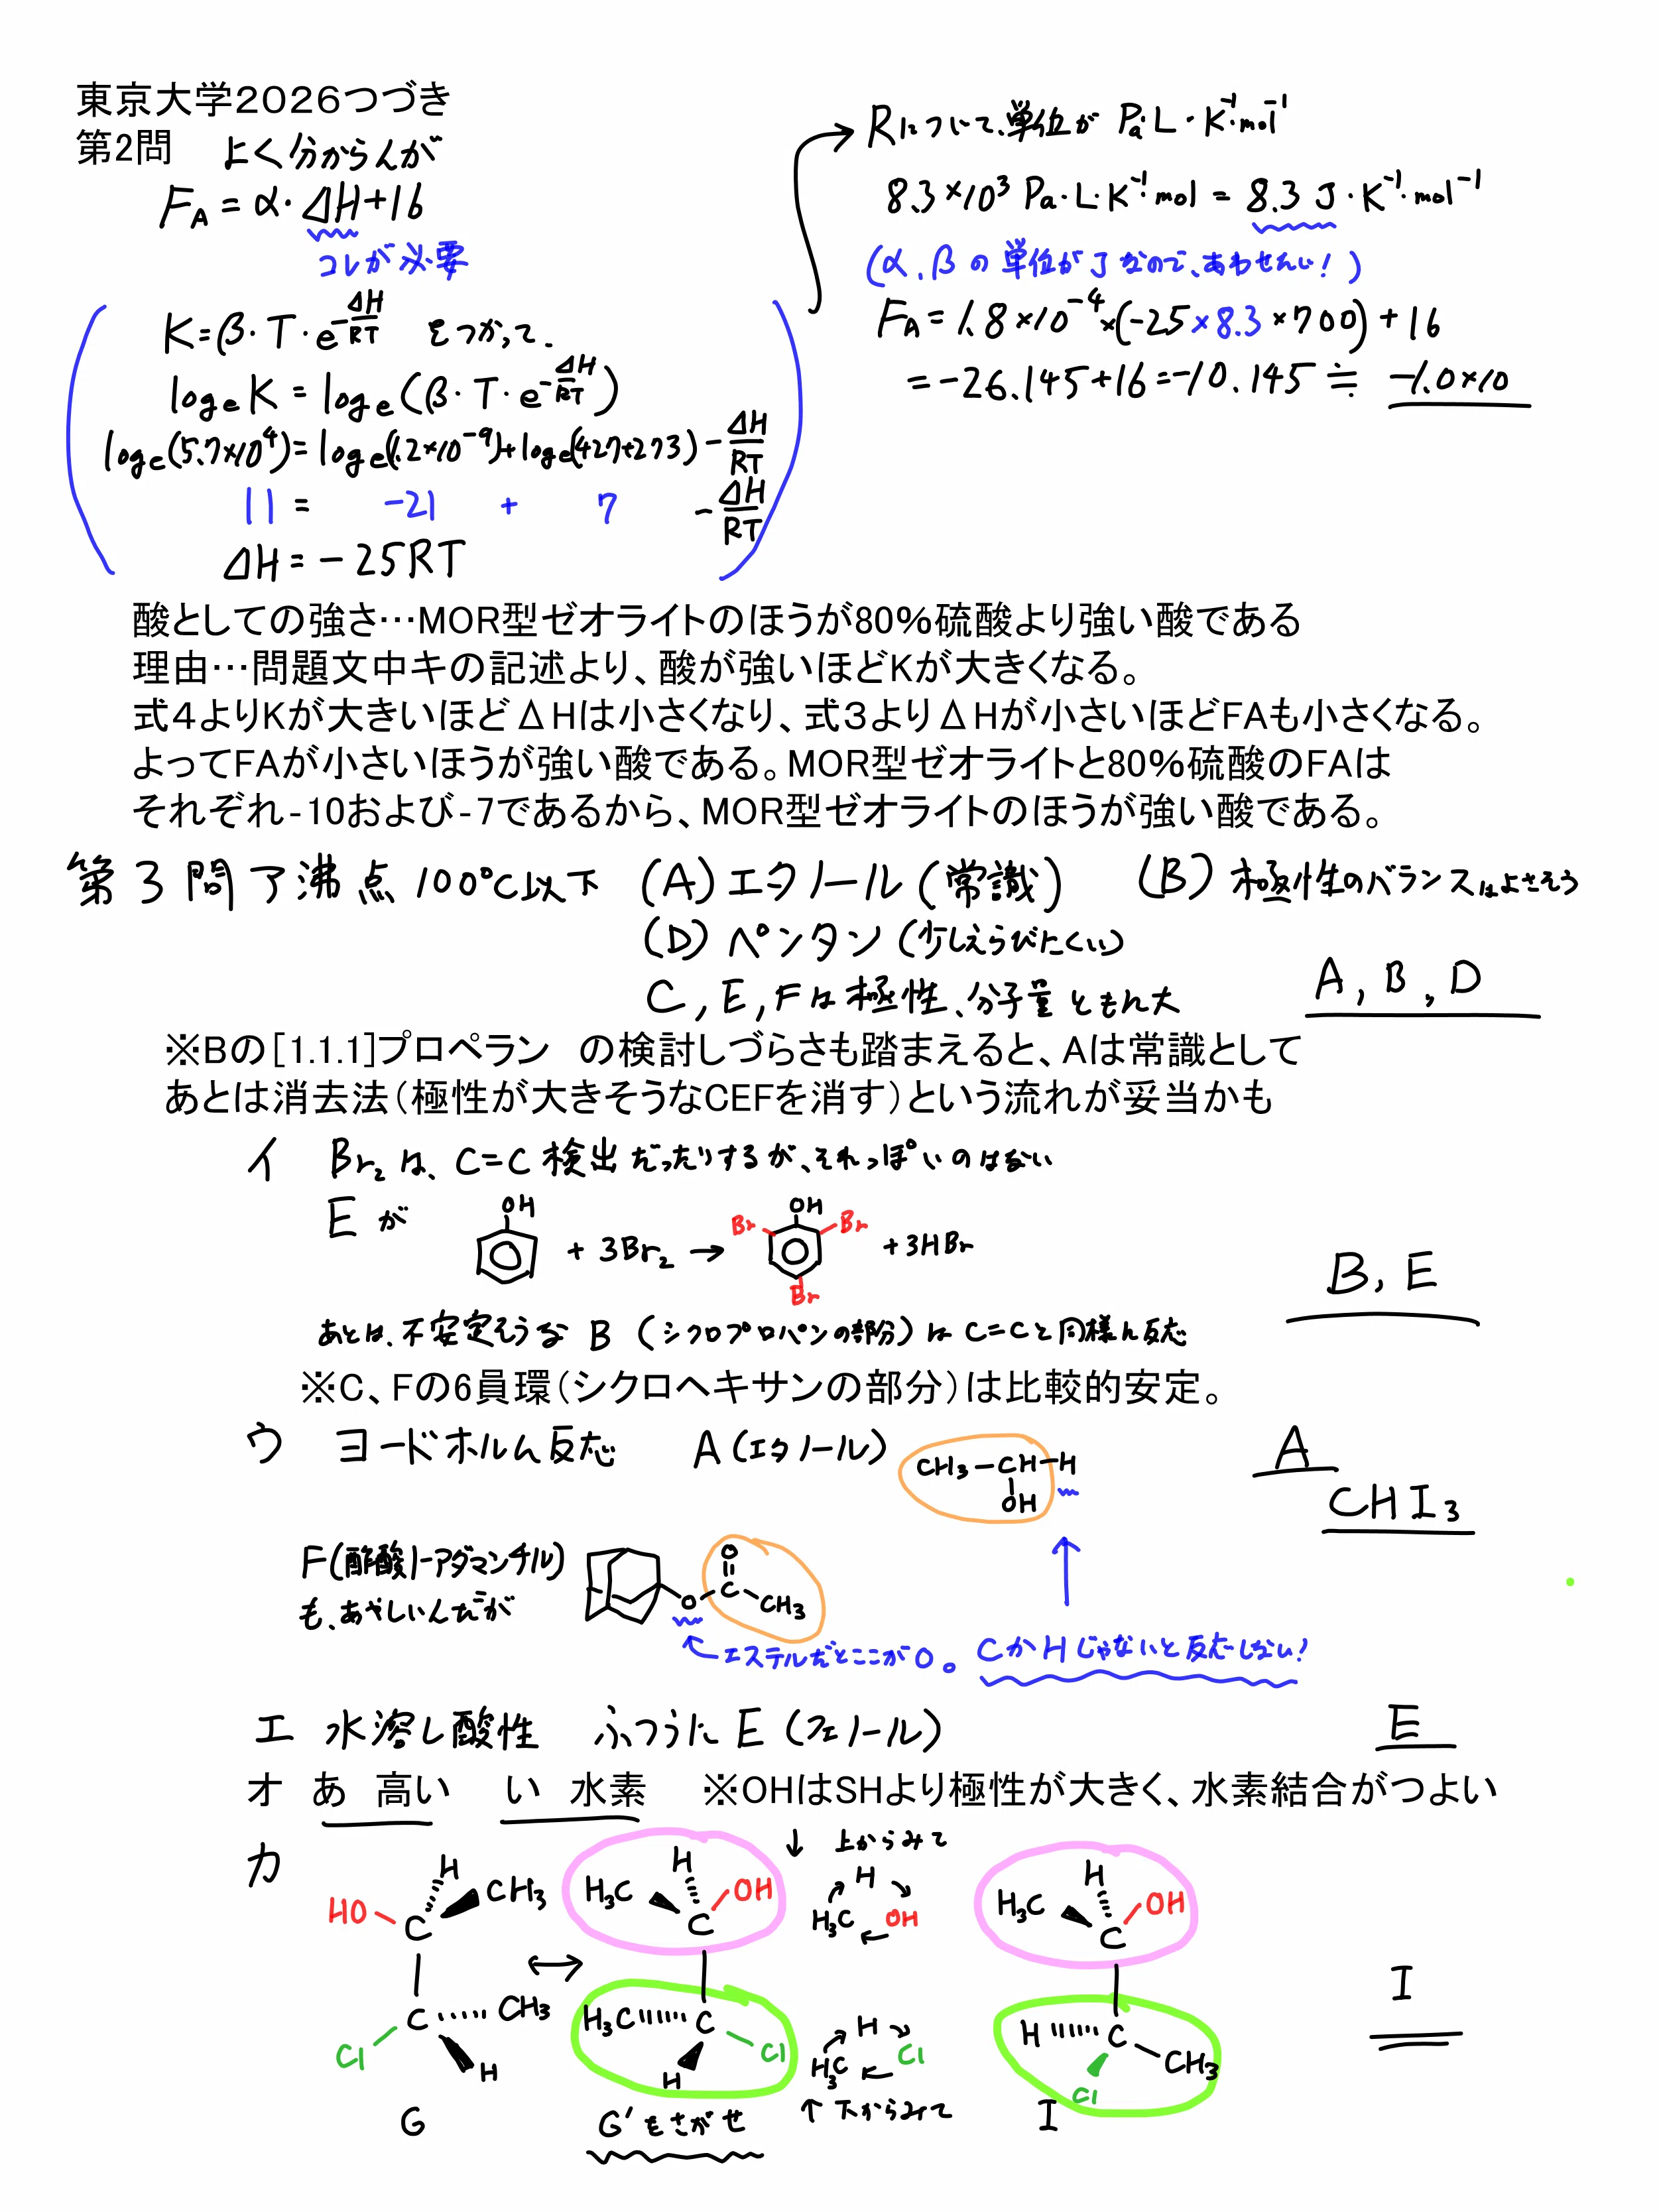 東京大学2026つづき
第2問 よく分からんが
F_A = α・ΔH+16
コレが必要
K = β・T・e^{-ΔH/RT} をつかって、
log_e K = log_e (β・T・e^{-ΔH/RT})
log_e(5.7×10^4) = log_e(1.2×10^{-9}) + log_e(427+273) - ΔH/RT
11 = -21 + 7 - ΔH/RT
ΔH = -25RT
Rについて、単位が Pa・L・K^{-1}・mol^{-1}
8.3×10^3 Pa・L・K^{-1}・mol = 8.3 J・K^{-1}・mol^{-1}
(α, βの単位がJなので、あわせたい!)
F_A = 1.8×10^{-4}×(-25×8.3×700) + 16
= -26.145+16 = -10.145 ≒ -1.0×10
酸としての強さ…MOR型ゼオライトのほうが80%硫酸より強い酸である
理由…問題文中キの記述より、酸が強いほどKが大きくなる。
式4よりKが大きいほどΔHは小さくなり、式3よりΔHが小さいほどFAも小さくなる。
よってFAが小さいほうが強い酸である。MOR型ゼオライトと80%硫酸のFAは
それぞれ-10および-7であるから、MOR型ゼオライトのほうが強い酸である。
第3問 ア 沸点100℃以下 (A) エタノール (常識) (B) 極性のバランスはよさそう
(D) ペンタン (少しえらびにくい)
C, E, Fは極性、分子量ともに大 A, B, D
※Bの[1.1.1]プロペラン の検討しづらさも踏まえると、Aは常識として
あとは消去法(極性が大きそうなCEFを消す)という流れが妥当かも
イ Br₂は、C=C検出だったりするが、それっぽいのはない
Eが OH + 3Br₂ → OH Br Br Br + 3HBr
B, E
あとは、不安定そうな B (シクロプロパンの部分)は C=Cと同様に反応
※C、Fの6員環(シクロヘキサンの部分)は比較的安定。
ウ ヨードホルム反応 A (エタノール) CH₃-CH-H OH A
CHI₃
F(酢酸1-アダマンチル) O O C CH₃
も、あやしいんだが
←エステルだとここがO。CかHじゃないと反応しない!
エ 水溶し酸性 ふつうにE (フェノール) E
オ あ 高い い 水素 ※OHはSHより極性が大きく、水素結合がつよい
カ ↓ 上からみて
H CH₃ HO C H₃C H OH C H H₃C OH H₃C H OH C
↔ I
C CH₃ Cl H H₃C C Cl H H H₃C Cl H C CH₃ Cl
G G'をさがせ ↑ 下からみて I